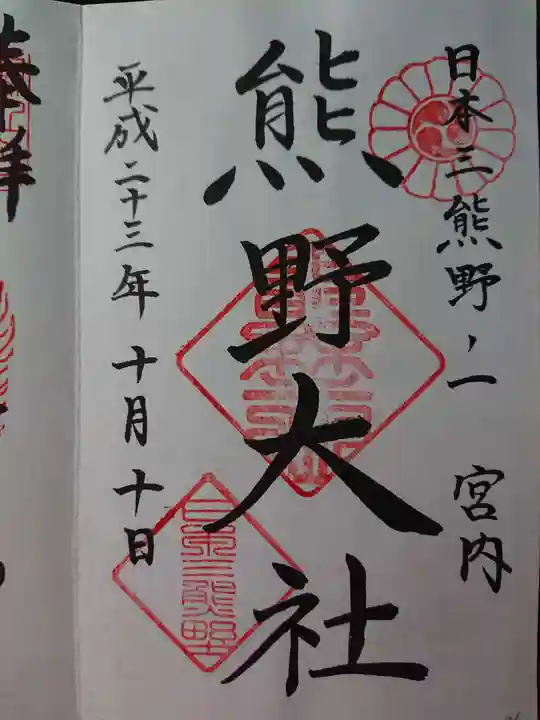 日本三熊野ノ一 宮内
熊野大社
平成二十三年 十月十日
日本三熊野
奉拝